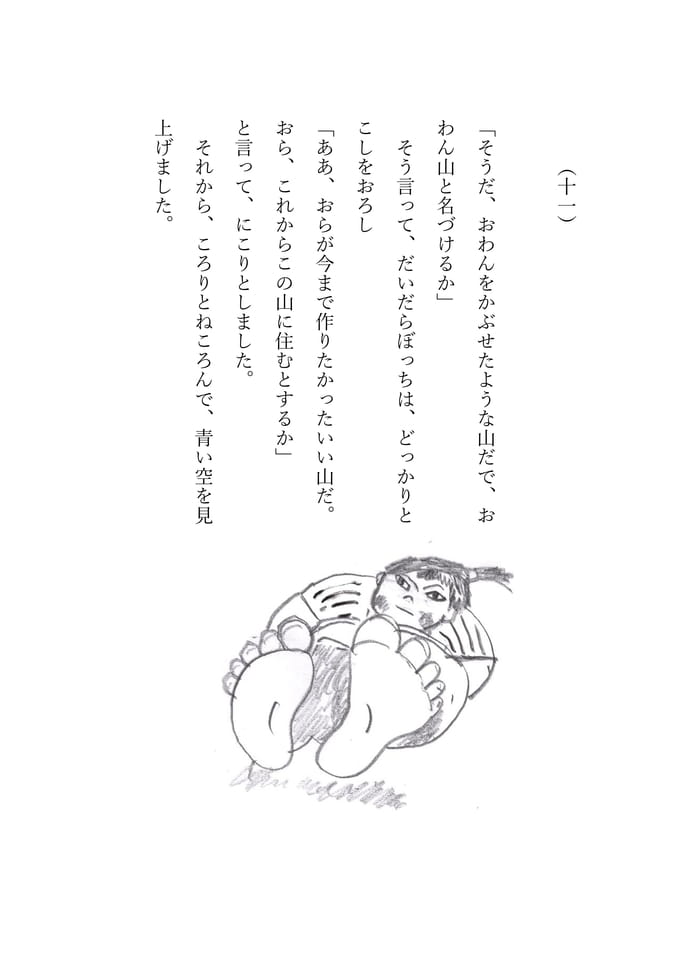 （十一）
「そうだ、おわんをかぶせたような山だで、お
わん山と名づけるか」
　そう言って、だいだらぼっちは、どっかりと
こしをおろし
「ああ、おらが今まで作りたかったいい山だ。
おら、これからこの山に住むとするか」
と言って、にこりとしました。
　それから、ころりとねころんで、青い空を見
上げました。